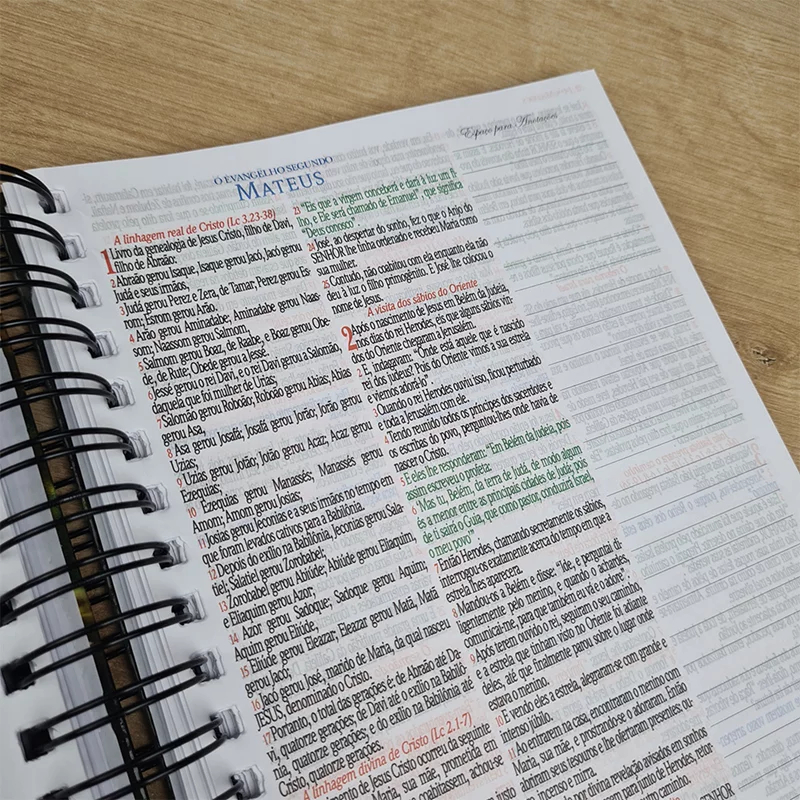 Espaço para Anotações
O EVANGELHO SEGUNDO
MATEUS
A linhagem real de Cristo (Lc 3.23-38)
1 Livro da genealogia de Jesus Cristo, filho de Davi,
filho de Abraão:
2 Abraão gerou Isaque, Isaque gerou Jacó, Jacó gerou
Judá e seus irmãos,
3 Judá gerou Perez e Zera, de Tamar, Perez gerou Es-
rom; Esrom gerou Arão.
4 Arão gerou Aminadabe; Aminadabe gerou Naas-
som; Naassom gerou Salmom,
5 Salmom gerou Boaz, de Raabe, e Boaz gerou Obe-
de, de Rute; Obede gerou a Jessé.
6 Jessé gerou o rei Davi, e o rei Davi gerou a Salomão,
daquela que foi mulher de Urias;
7 Salomão gerou Roboão; Roboão gerou Abias; Abias
gerou Asa,
8 Asa gerou Josafá; Josafá gerou Jorão; Jorão gerou
Uzias;
9 Uzias gerou Jotão; Jotão gerou Acaz, Acaz gerou
Ezequias;
10 Ezequias gerou Manassés, Manassés gerou
Amom; Amom gerou Josias;
11 Josias gerou Jeconias e a seus irmãos no tempo em
que foram levados cativos para a Babilônia.
12 Depois do exílio na Babilônia, Jeconias gerou Sala-
tiel; Salatiel gerou Zorobabel;
13 Zorobabel gerou Abiúde; Abiúde gerou Eliaquim,
e Eliaquim gerou Azor;
14 Azor gerou Sadoque, Sadoque gerou Aquim,
Aquim gerou Eliúde,
15 Eliúde gerou Eleazar, Eleazar gerou Matã, Matã
gerou Jacó;
16 Jacó gerou José, marido de Maria, da qual nasceu
JESUS, denominado o Cristo.
17 Portanto, o total das gerações é: de Abraão até Da-
vi, quatorze gerações; de Davi até o exílio na Babilô-
nia, quatorze gerações; e do exílio na Babilônia até
Cristo, quatorze gerações.
A linhagem divina de Cristo (Lc 2.1-7)
mento de Jesus Cristo ocorreu da seguinte
Maria, sua mãe, prometida em
coabitassem, achou-se
23 “Eis que a virgem conceberá e dará à luz um fi-
lho, e Ele será chamado de Emanuel”, que significa
“Deus conosco”.
24 José, ao despertar do sonho, fez o que o Anjo do
SENHOR lhe tinha ordenado e recebeu Maria como
sua mulher.
25 Contudo, não coabitou com ela enquanto ela não
deu à luz o filho primogênito. E José lhe colocou o
nome de Jesus.
A visita dos sábios do Oriente
2 Após o nascimento de Jesus em Belém da Judeia,
nos dias do rei Herodes, eis que alguns sábios vin-
dos do Oriente chegaram a Jerusalém.
2 E, indagavam: “Onde está aquele que é nascido
rei dos judeus? Pois do Oriente vimos a sua estrela
e viemos adorá-lo”.
3 Quando o rei Herodes ouviu isso, ficou perturbado
e toda a Jerusalém com ele.
4 Tendo reunido todos os príncipes dos sacerdotes e
os escribas do povo, perguntou-lhes onde havia de
nascer o Cristo.
5 E eles lhe responderam: “Em Belém da Judeia, pois
assim escreveu o profeta:
6 ‘Mas tu, Belém, da terra de Judá, de modo algum
és a menor entre as principais cidades de Judá; pois
de ti sairá o Guia, que como pastor, conduzirá Israel,
o meu povo’”.
7 Então Herodes, chamando secretamente os sábios,
interrogou-os exatamente acerca do tempo em que a
estrela lhes aparecera.
8 Mandou-os a Belém e disse: “Ide, e perguntai di-
ligentemente pelo menino, e quando o achardes,
comunicai-me, para que também eu vá e o adore”.
9 Após terem ouvido o rei, seguiram o seu caminho,
e a estrela que tinham visto no Oriente foi adiante
deles, até que finalmente parou sobre o lugar onde
estava o menino.
10 E vendo eles a estrela, alegraram-se com grande e
intenso júbilo.
11 Ao entrarem na casa, encontraram o menino com
Maria, sua mãe, e prostrando-se o adoraram. Então
abriram seus tesouros e lhe ofertaram presentes: ou-
incenso e mirra.
por divina revelação avisados em sonhos
para junto de Herodes, retor-
caminho.
SENHOR